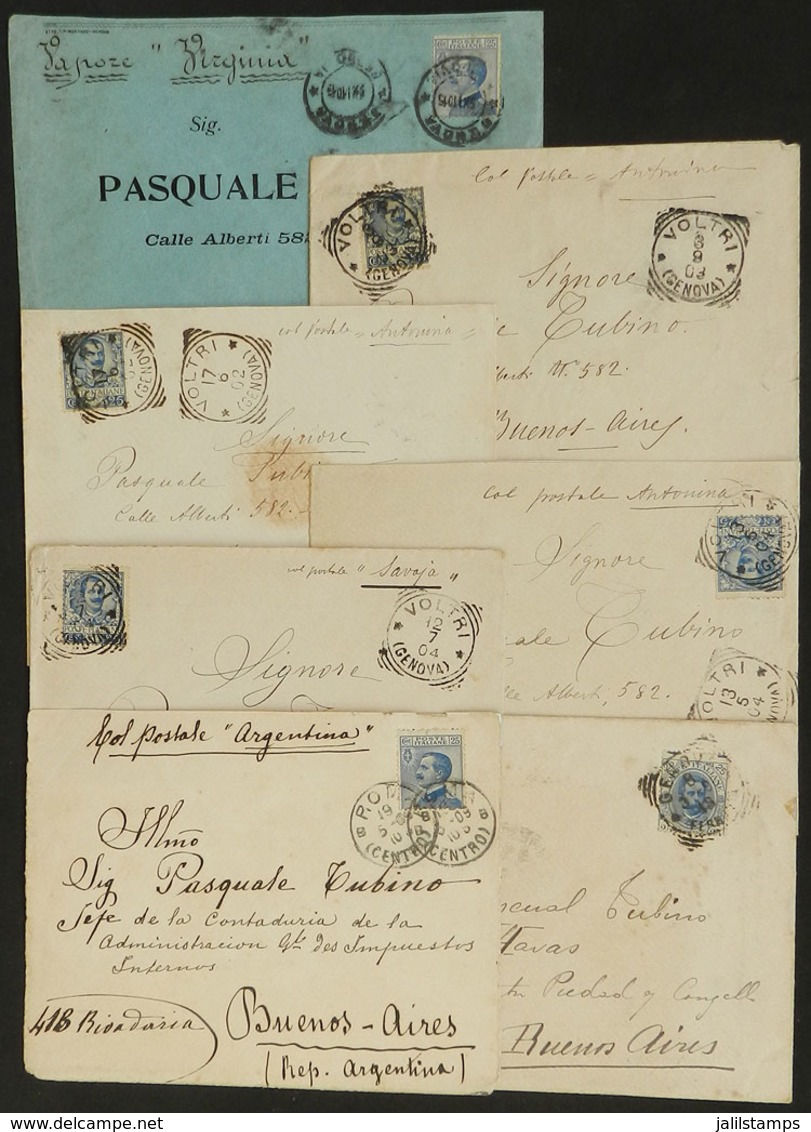 Vapore "Virginia"
Sig.
PASQUALE
Calle Alberti 582
GENOVA
25
Col postale "Antonina
VOLTRI
8
9
03
(GENOVA)
Signore
Tubino.
Alberti N. 582.
Buenos-Aires.
VOLTRI
17
6
02
(GENOVA)
col postale "Antonina"
Signore
Pasquale Tubi
Calle Alberti 582.
Col postale Antonina
Signore
Tubino
Calle Alberti, 582.
VOLTRI
13
5
04
col postale "Savoja"
VOLTRI
12
7
04
(GENOVA)
Signore
Col postale "Argentina"
POSTE
ITALIANE
25
ROMA
(CENTRO)
Illmo
Sig Pasquale Tubino
Jefe de la Contaduria de la
Administracion Gl des Impuestos
Internos
418 Rivadaria
Buenos-Aires
(Rep. Argentina)
Tubino
Piedad y
Buenos Aires
jalilstamps